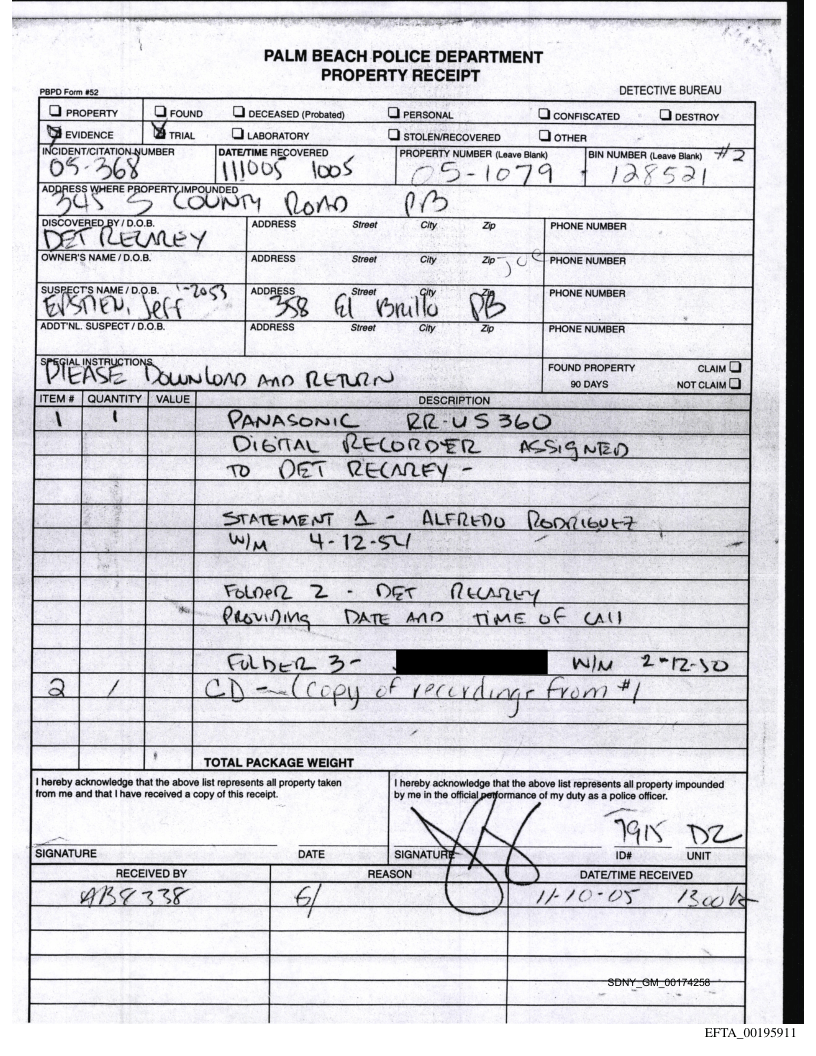 PALM BEACH POLICE DEPARTMENT
PROPERTY RECEIPT
PBPD Form #52
DETECTIVE BUREAU
PROPERTY FOUND DECEASED (Probated) PERSONAL CONFISCATED DESTROY
EVIDENCE TRIAL LABORATORY STOLEN/RECOVERED OTHER
INCIDENT/CITATION NUMBER DATE/TIME RECOVERED PROPERTY NUMBER (Leave Blank) BIN NUMBER (Leave Blank) #2
05-368 111005 1005 05-1079 128521
ADDRESS WHERE PROPERTY IMPOUNDED
345 S COUNTY ROAD PB
DISCOVERED BY / D.O.B. ADDRESS Street City Zip PHONE NUMBER
DET RECAREY
OWNER'S NAME / D.O.B. ADDRESS Street City Zip PHONE NUMBER
SUSPECT'S NAME / D.O.B. ADDRESS Street City Zip PHONE NUMBER
EPSTIEN, Jeff 358 El Brillo PB
ADDT'NL. SUSPECT / D.O.B. ADDRESS Street City Zip PHONE NUMBER
SPECIAL INSTRUCTIONS FOUND PROPERTY CLAIM
PLEASE DOWNLOAD AND RETURN 90 DAYS NOT CLAIM
ITEM # QUANTITY VALUE DESCRIPTION
1 1 PANASONIC RR-US360
DIGITAL RECORDER ASSIGNED
TO DET RECAREY -
STATEMENT 1 - ALFREDO RODRIGUEZ
W/M 4-12-54
FOLDER 2 - DET RECAREY
PROVIDING DATE AND TIME OF CALL
FOLDER 3- W/M 2-12-50
2 1 CD - (copy of recordings from #1
TOTAL PACKAGE WEIGHT
I hereby acknowledge that the above list represents all property taken
from me and that I have received a copy of this receipt.
I hereby acknowledge that the above list represents all property impounded
by me in the official performance of my duty as a police officer.
7915 D2
SIGNATURE DATE SIGNATURE ID# UNIT
RECEIVED BY REASON DATE/TIME RECEIVED
AB8338 11-10-05
SDNY_GM_00174258
EFTA_00195911